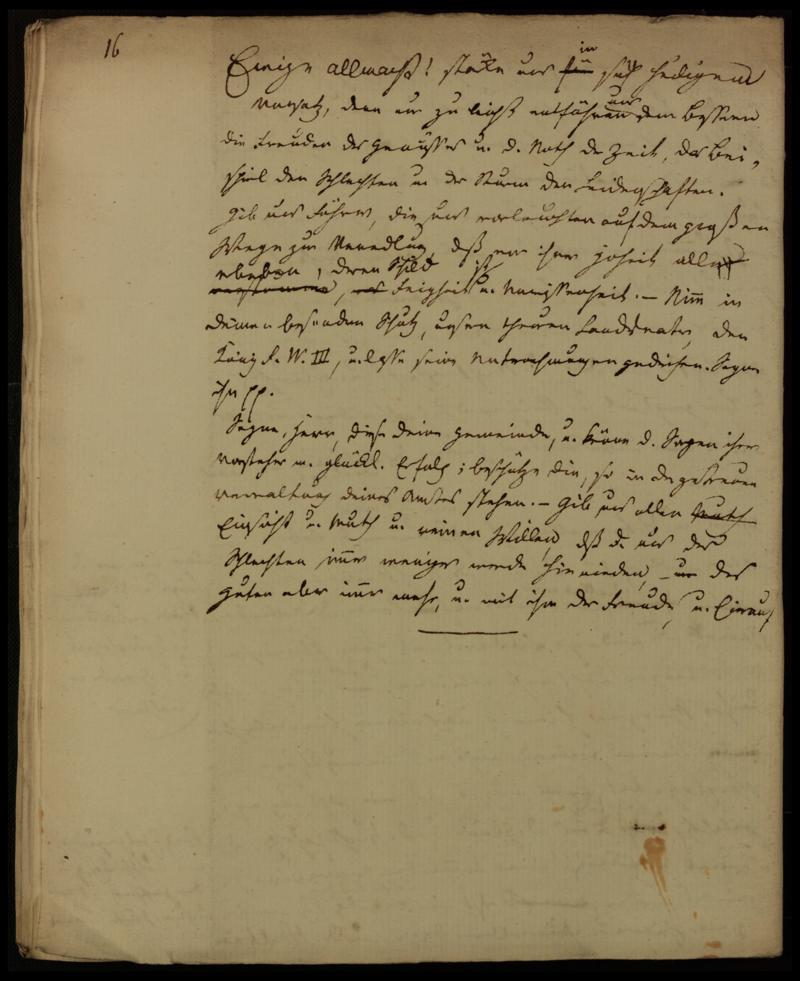 16
Ewige Allmacht! stärke uns in solch heiligem
Vorsatz, denn nur zu leicht entführen uns dem Bessern
die Freuden des Genusses u. d. Noth der Zeit, das Bei-
spiel der Schlechten u. der Sturm der Leidenschaften.
Gib uns Führer, die uns vorleuchten auf dem großen
Wege zur Veredlung, daß wir ihrer
deren Schild ist Feigheit u. – Nimm in
deinen besondern Schutz, unsern theuren Landesvater, den
König F. W. III, u. lasse seine Unternehmungen gedeihen. Segne
ihn pp.
Segne, Herr, diese deine Gemeinde, u. kröne d. Segen ihrer
Vorsteher m. glückl. Erfolg; beschütze die, so in der getreuen
Verwaltung deines Amtes stehen. – Gib uns allen Muth
Einsicht u. Muth u. reinen Willen, daß d. uns der
Schlechten immer weniger werde hienieden, – der
Guten aber immer mehr, u. mit ihm der Freude, u.